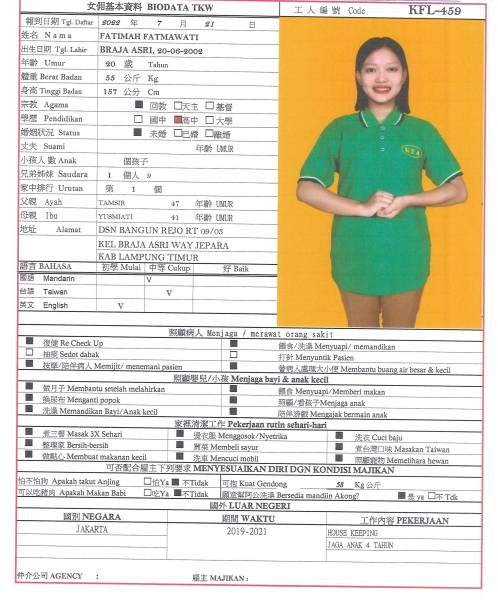 女佣基本資料 BIODATA TKW
工人編號 Code KFL-459
報到日期 Tgl. Daftar 2022 年 7 月 21 日
姓名 Nama FATIMAH FATMAWATI
出生日期 Tgl. Lahir BRAJA ASRI, 20-06-2002
年齡 Umur 20 歲 Tahun
體重 Berat Badan 55 公斤 Kg
身高 Tinggi Badan 157 公分 Cm
宗教 Agama ■ 回教 □天主 □基督
學歷 Pendidikan □ 國中 ■高中 □大學
婚姻狀況 Status ■ 未婚 □已婚 □離婚
丈夫 Suami 年齡 UMUR
小孩人數 Anak 個孩子
兄弟姊妹 Saudara 1 個人 9
家中排行 Urutan 第 1 個
父親 Ayah TAMSIR 47 年齡 UMUR
母親 Ibu YUSMIATI 41 年齡 UMUR
地址 Alamat DSN BANGUN REJO RT 09/03
KEL BRAJA ASRI WAY JEPARA
KAB LAMPUNG TIMUR
語言 BAHASA 初學 Mulai 中等 Cukup 好 Baik
國語 Mandarin V
台語 Taiwan V
英文 English V
照顧病人 Menjaga / merawat orang sakit
■ 復健 Re Check Up ■ 餵食/洗澡 Menyuapi/ memandikan
□ 抽痰 Sedot dahak □ 打針 Menyuntik Pasien
■ 按摩/陪伴病人 Memijit/ menemani pasien ■ 替病人處理大小便 Membantu buang air besar & kecil
照顧嬰兒/小孩 Menjaga bayi & anak kecil
■ 做月子 Membantu setelah melahirkan ■ 餵食 Menyuapi/Memberi makan
■ 換尿布 Menganti popok ■ 照顧/看孩子Menjaga anak
■ 洗澡 Memandikan Bayi/Anak kecil ■ 陪伴游戲 Mengajak bermain anak
家裡清潔工作 Pekerjaan rutin sehari-hari
■ 煮三餐 Masak 3X Sehari ■ 燙衣服 Menggosok/Nyetrika ■ 洗衣 Cuci baju
■ 整理家 Bersih-bersih ■ 買菜 Membeli sayur ■ 煮台灣口味 Masakan Taiwan
■ 做點心 Membuat makanan kecil ■ 洗車 Mencuci mobil ■ 照顧寵物 Memelihara hewan
可否配合雇主下列要求 MENYESUAIKAN DIRI DGN KONDISI MAJIKAN
怕不怕狗 Apakah takut Anjing □怕Ya ■不Tidak 可抱 Kuat Gendong 58 Kg 公斤
可以吃豬肉 Apakah Makan Babi □吃Ya ■不Tidak 願意幫阿公洗澡 Bersedia mandiin Akong? ■ 是 ya □不.Tdk
國外 LUAR NEGERI
國別 NEGARA 期間 WAKTU 工作內容 PEKERJAAN
JAKARTA 2019-2021 HOUSE KEEPING
JAGA ANAK 4 TAHUN
仲介公司 AGENCY : 雇主 MAJIKAN :